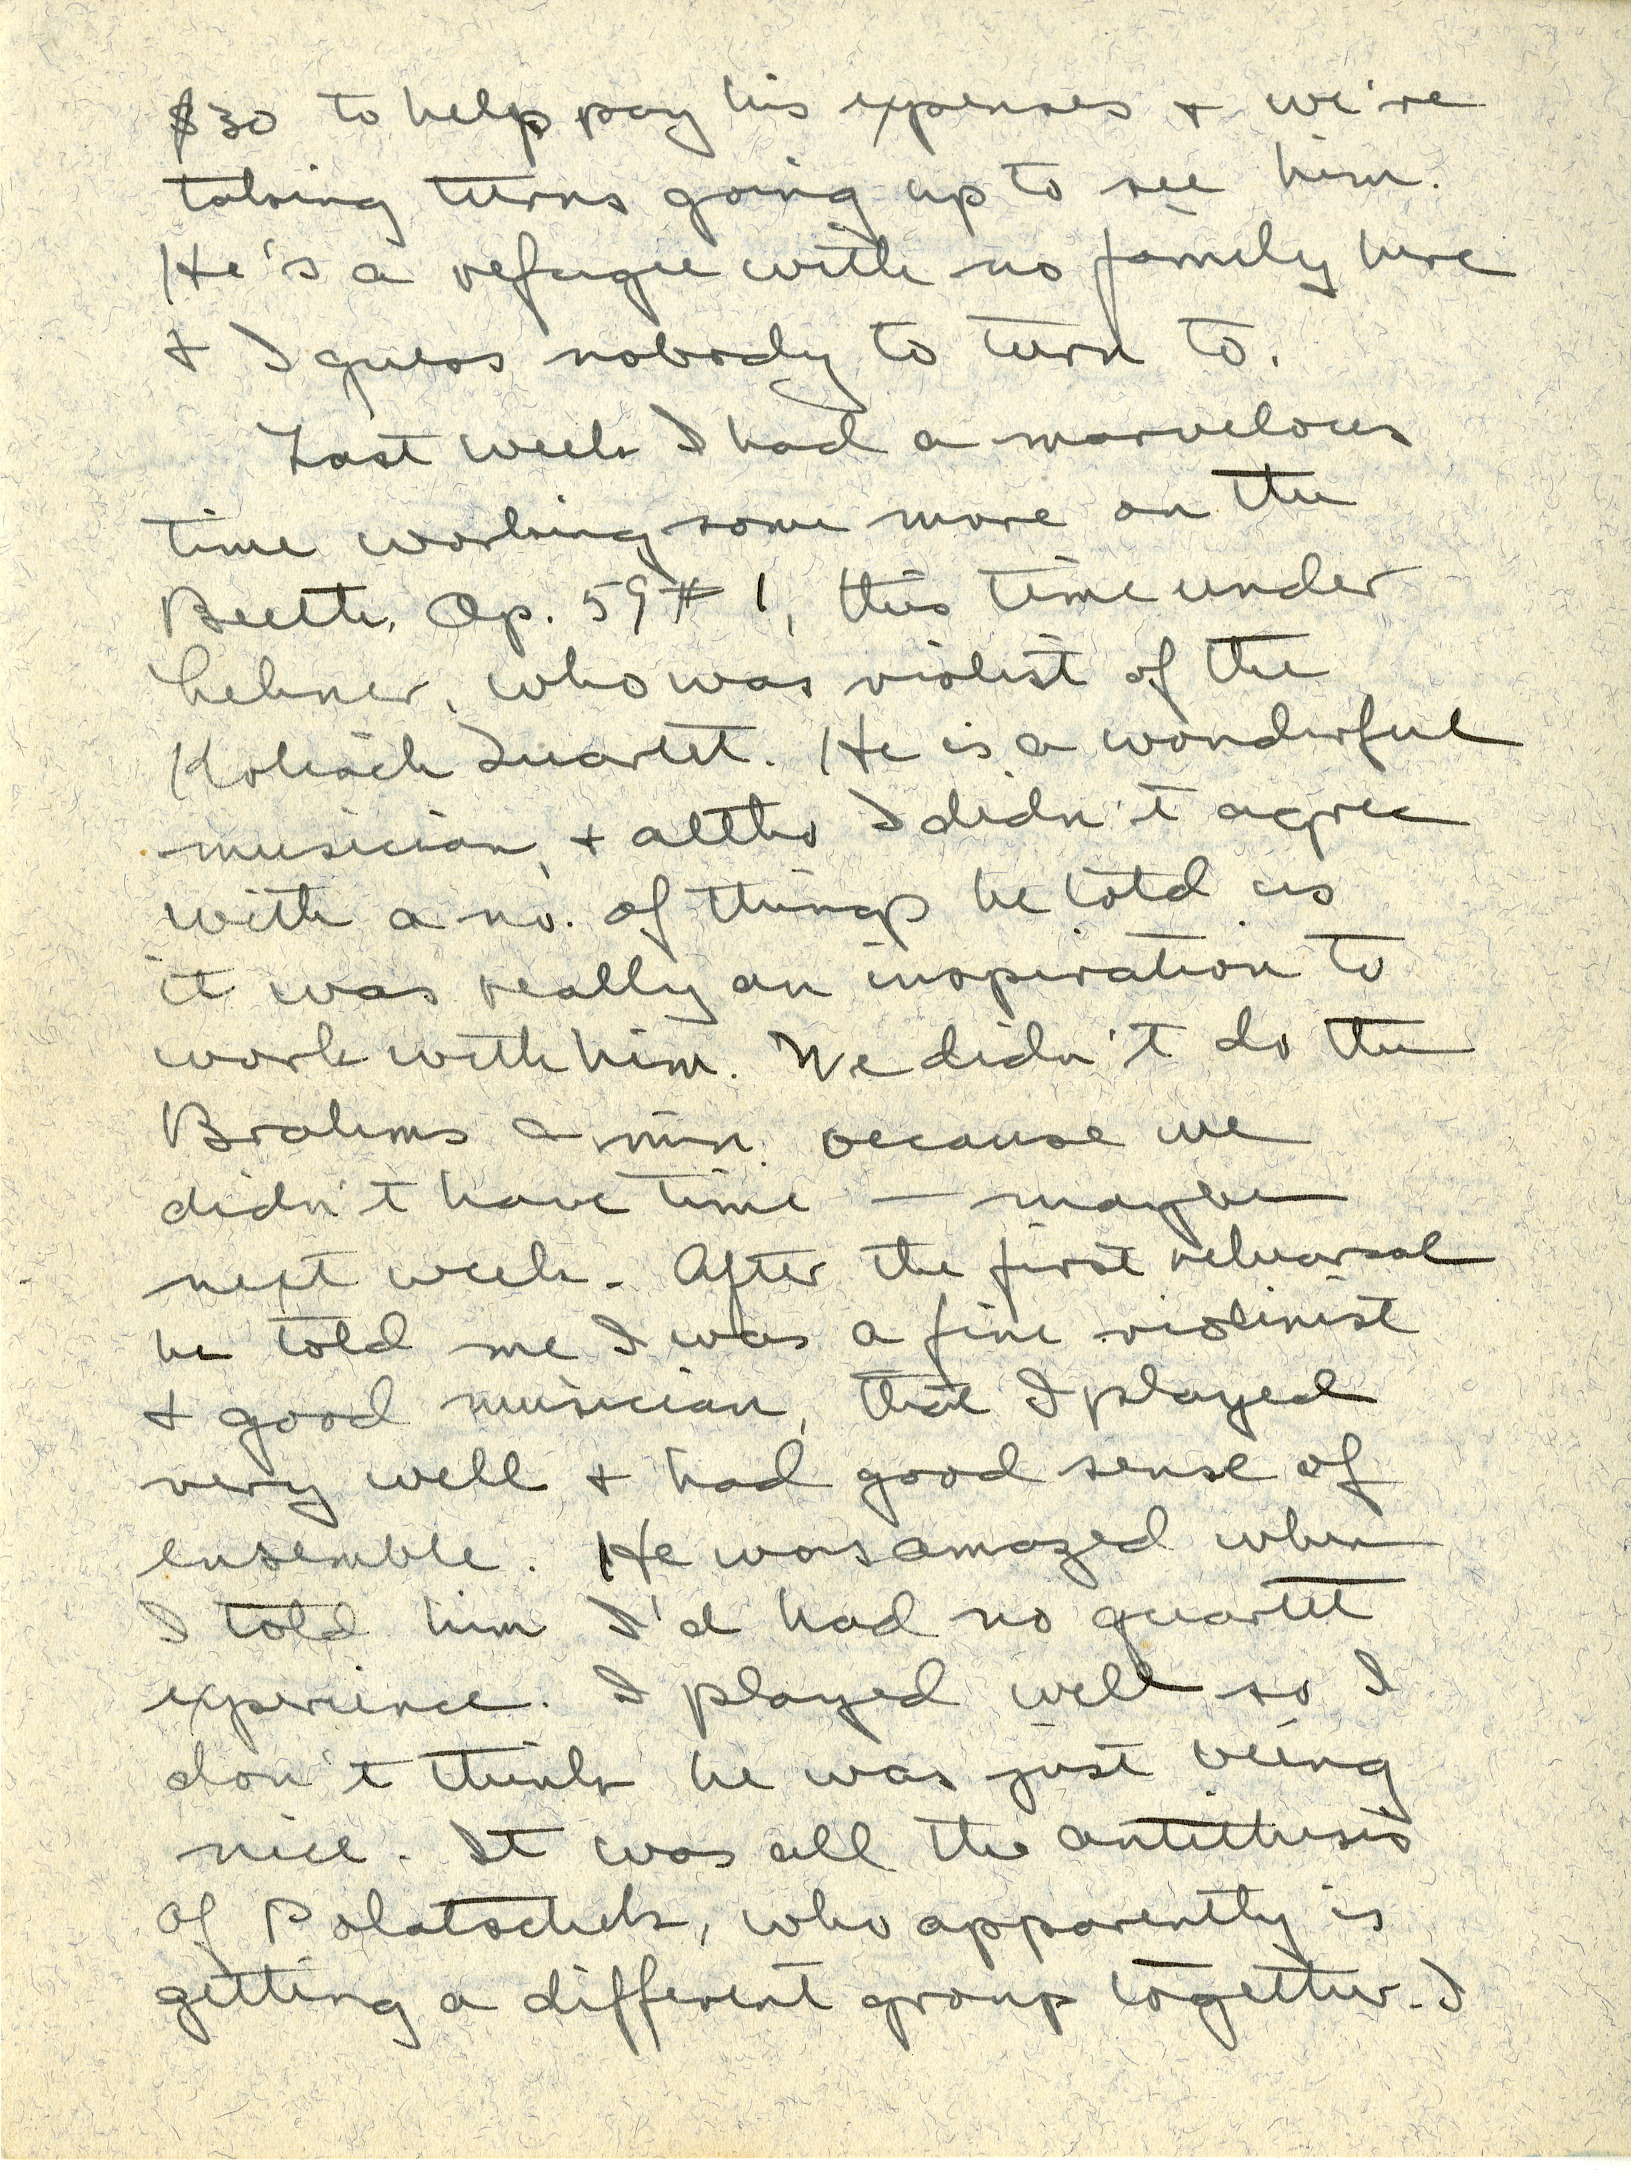 $30 to help pay his expenses + we're
taking turns going up to see him.
He's a refugee with no family here
+ I guess nobody to turn to.
Last week I had a marvelous
time working some more on the
Beeth. Op. 59 # 1, this time under
Lehner, who was violist of the
Kolisch Quartet. He is a wonderful
musician, + altho I didn't agree
with a no. of things he told us
it was really an inspiration to
work with him. We didn't do the
Brahms a min. because we
didn't have time — maybe
next week. After the first rehearsal
he told me I was a fine violinist
+ good musician, that I played
very well + had good sense of
ensemble. He was amazed when
I told him I'd had no quartet
experience. I played well so I
don't think he was just being
nice. It was all the antithesis
of Polatschek, who apparently is
getting a different group together. I